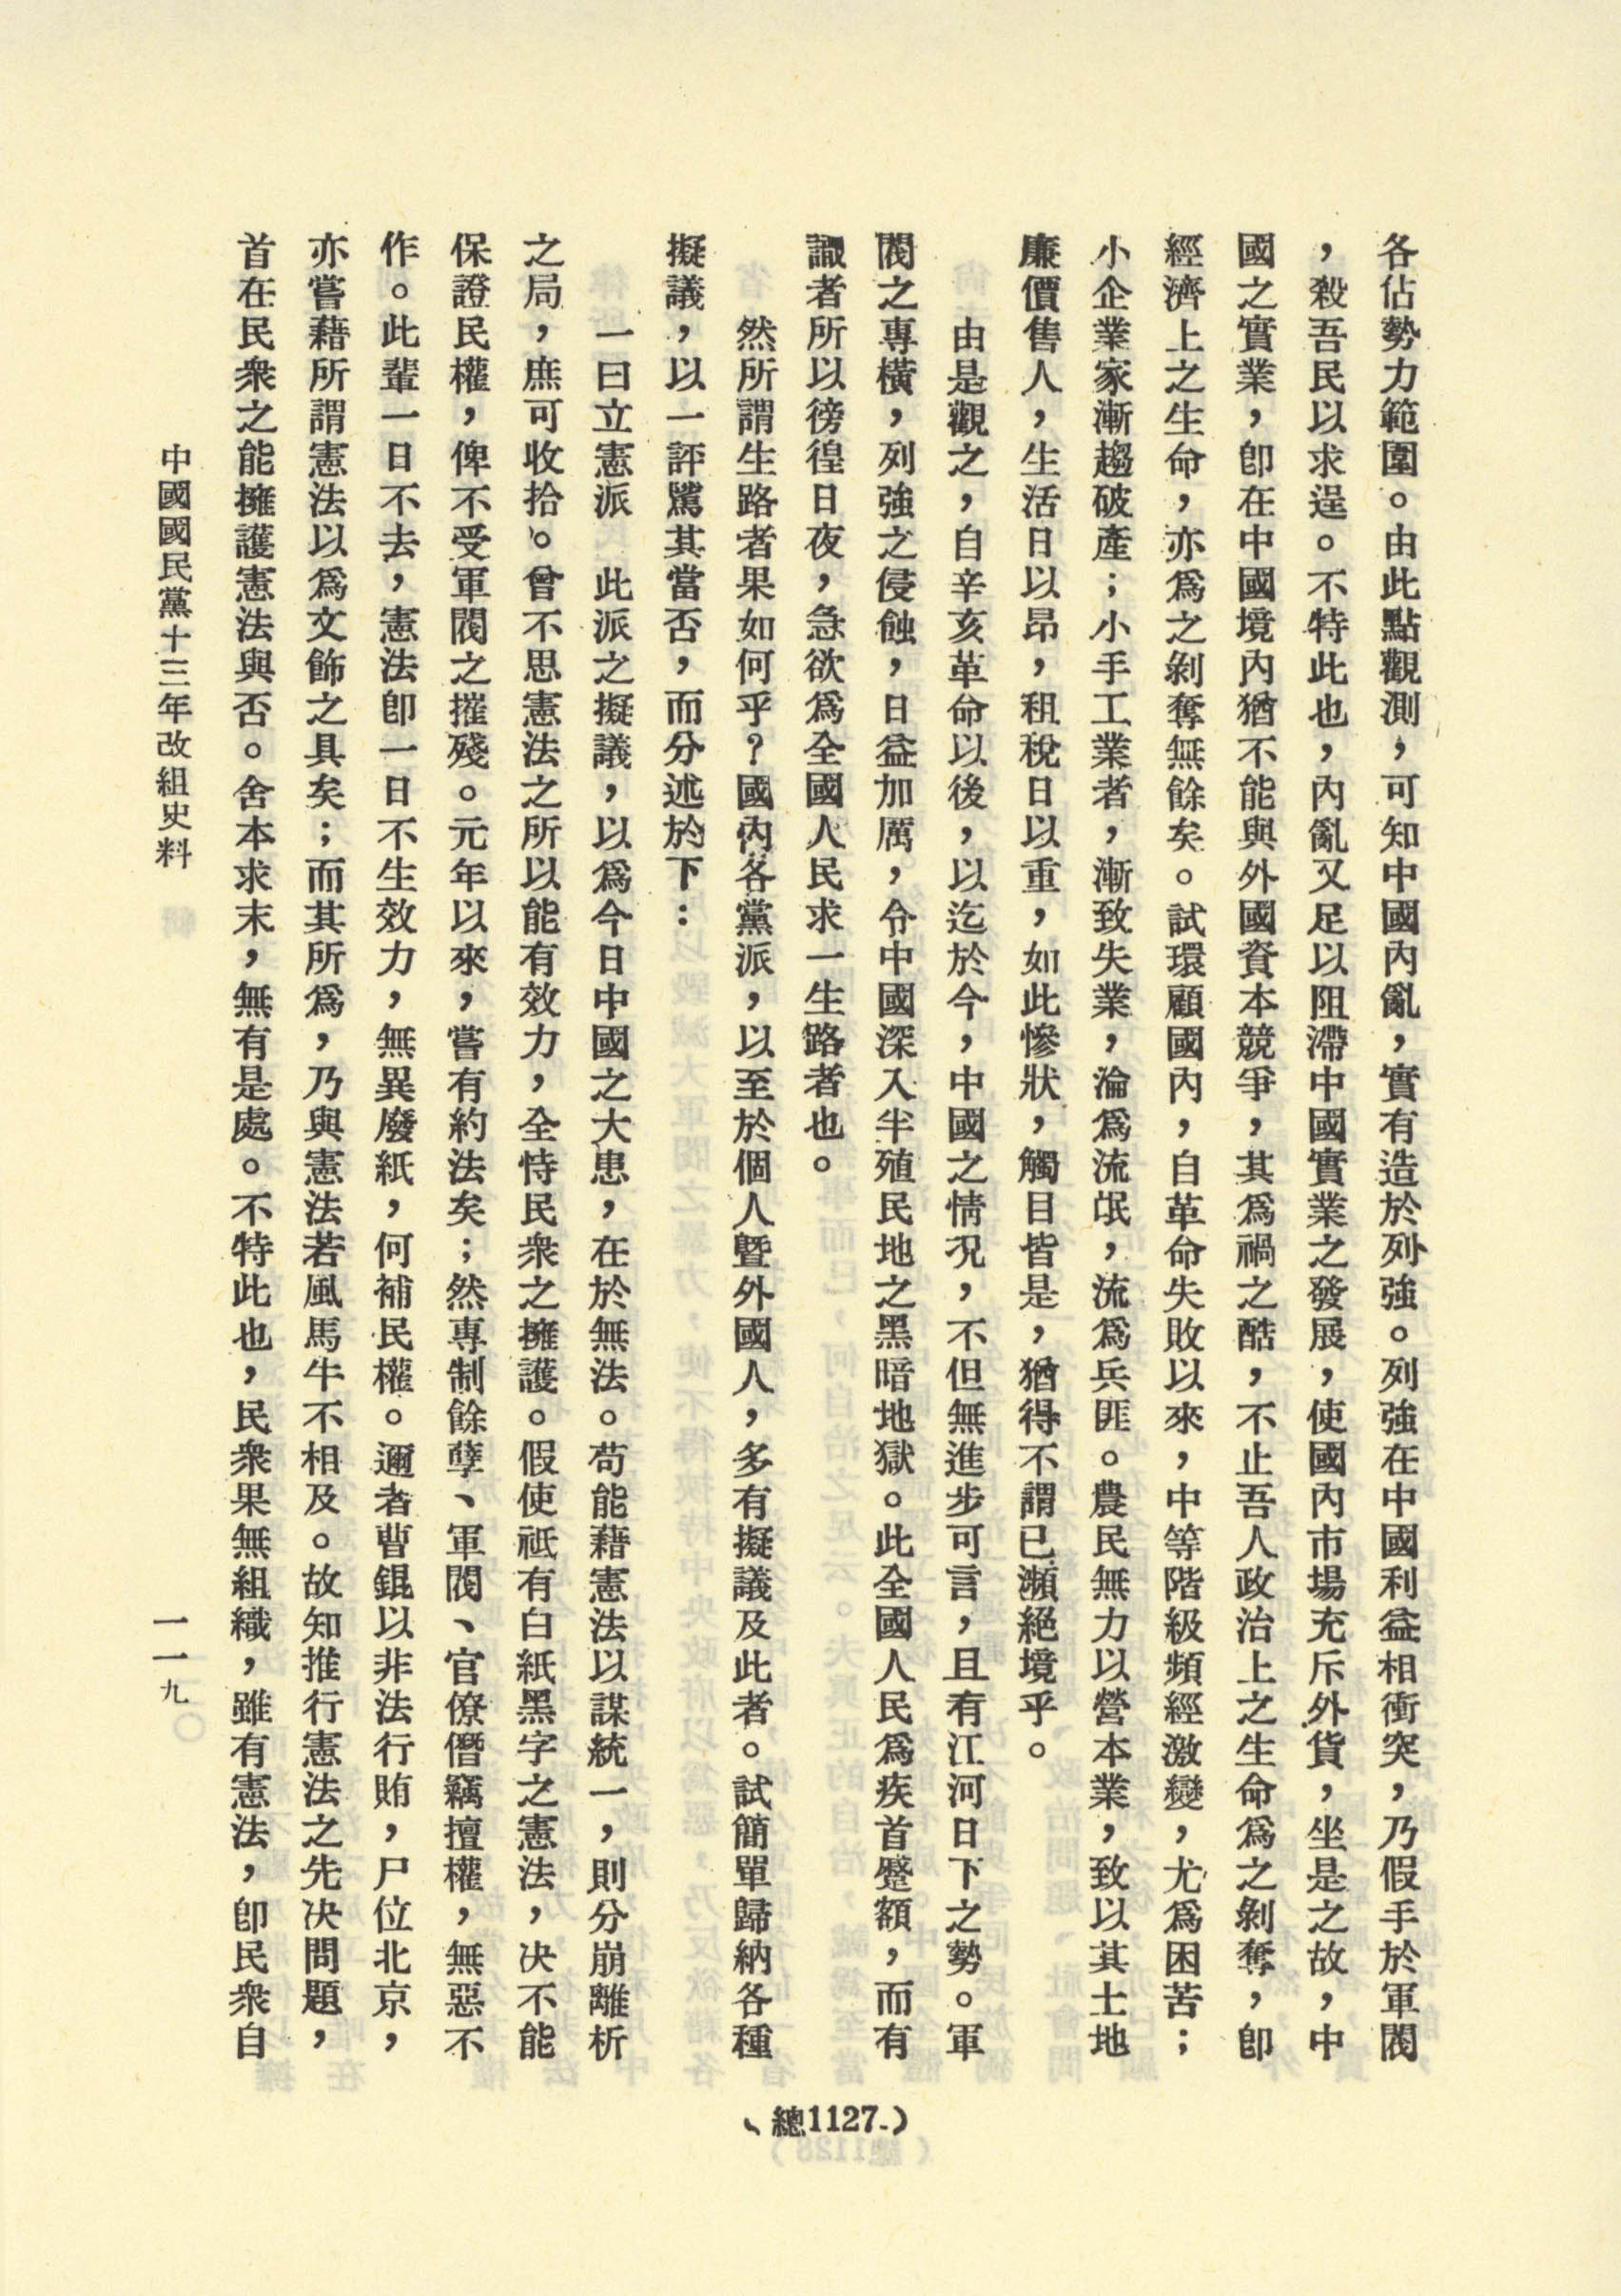 各佔勢力範圍。由此點觀測，可知中國內亂，實有造於列強。列強在中國利益相衝突，乃假手於軍閥
，殺吾民以求逞。不特此也，內亂又足以阻滯中國實業之發展，使國內市場充斥外貨，坐是之故，中
國之實業，卽在中國境內猶不能與外國資本競爭，其爲禍之酷，不止吾人政治上之生命爲之剝奪，卽
經濟上之生命，亦爲之剝奪無餘矣。試環顧國內，自革命失敗以來，中等階級頻經激變，尤爲困苦；
小企業家漸趨破產；小手工業者，漸致失業，淪爲流氓，流爲兵匪。農民無力以營本業，致以其土地
廉價售人，生活日以昂，租稅日以重，如此慘狀，觸目皆是，猶得不謂已瀕絕境乎。
由是觀之，自辛亥革命以後，以迄於今，中國之情況，不但無進步可言，且有江河日下之勢。軍
閥之專橫，列強之侵蝕，日益加厲，令中國深入半殖民地之黑暗地獄。此全國人民爲疾首蹙額，而有
識者所以徬徨日夜，急欲爲全國人民求一生路者也。
然所謂生路者果如何乎？國內各黨派，以至於個人曁外國人，多有擬議及此者。試簡單歸納各種
擬議，以一評騭其當否，而分述於下：
一曰立憲派　此派之擬議，以爲今日中國之大患，在於無法。苟能藉憲法以謀統一，則分崩離析
之局，庶可收拾。曾不思憲法之所以能有效力，全恃民衆之擁護。假使祇有白紙黑字之憲法，决不能
保證民權，俾不受軍閥之摧殘。元年以來，嘗有約法矣；然專制餘孽、軍閥、官僚僭竊擅權，無惡不
作。此輩一日不去，憲法卽一日不生效力，無異廢紙，何補民權。邇者曹錕以非法行賄，尸位北京，
亦嘗藉所謂憲法以爲文飾之具矣；而其所爲，乃與憲法若風馬牛不相及。故知推行憲法之先决問題，
首在民衆之能擁護憲法與否。舍本求末，無有是處。不特此也，民衆果無組織，雖有憲法，卽民衆自
中國國民黨十三年改組史料
一一九
（總1127）